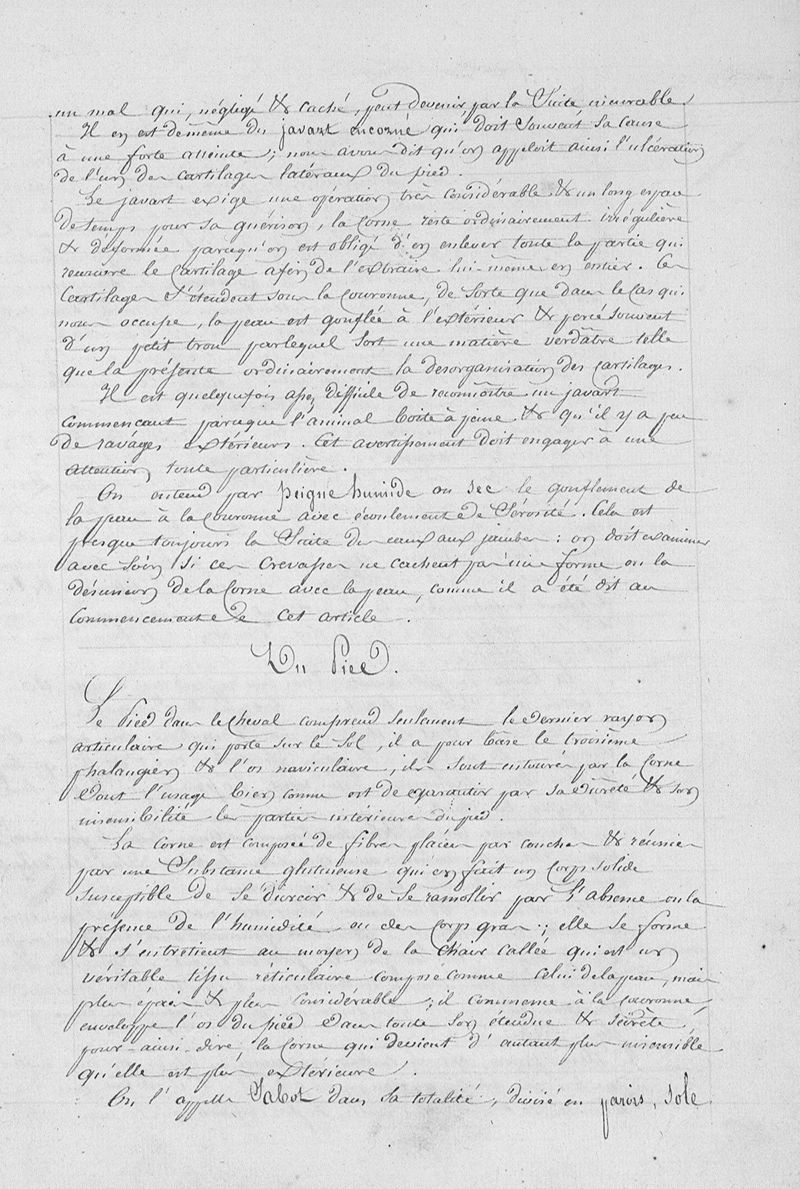 un mal qui, négligé & caché, peut devenir par la Suite incurable.
Il en est de même du javart encorné qui doit souvent sa cause
à une forte atteinte; nous avons dit qu'on appeloit ainsi l'ulcération
de l'un des cartilages latéraux du pied.
Le javart exige une opération très considérable & un long espace
de temps pour sa guérison, la corne reste ordinairement irrégulière
& deformée parcequ'on est obligé d'en enlever toute la partie qui
recouvre le cartilage afin de l'extraire lui-même en entier. Ces
cartilages s'étendent sous la couronne, de sorte que dans le cas qui
nous occupe, la peau est gonflée à l'extérieur & percé souvent
d'un petit trou par lequel sort une matière verdâtre telle
que la présente ordinairement la desorganisation des cartilages.
Il est quelquefois assez difficile de reconnoître un javart
commençant parceque l'animal boite à peine & qu'il y a peu
de ravages extérieurs. Cet avertissement doit engager à une
attention toute particulière.
On entend par peigne humide ou sec le gonflement de
la peau à la couronne avec écoulement de Sérosité. Cela est
presque toujours la Suite des eaux aux jambes : on doit examiner
avec soin si ces crevasses ne cachent pas une forme ou la
désunion de la corne avec la peau, comme il a été dit au
commencement de cet article.
Du Pied.
Le Pied dans le cheval comprend seulement le dernier rayon
articulaire qui porte sur le sol, il a pour base le troisième
phalangien & l'os naviculaire, ils sont entourés par la corne
dont l'usage bien connu est de garantir par sa dureté & son
insensibilité les parties intérieures du pied.
La corne est composée de fibres placées par couches & réunies
par une Substance glutineuse qui en fait un corps solide
susceptible de se durcir & de se ramollir par l'absence ou la
présence de l'humidité ou des corps gras; elle se forme
& s'entretient au moyen de la chair callée qui est un
véritable tissu réticulaire composé comme celui de la peau, mais
plus épais & plus considérable; il commence à la couronne,
enveloppe l'os du pied dans toute son étendue & sécrète
pour ainsi dire la corne qui devient d'autant plus insensible
qu'elle est plus extérieure.
On l'appelle Sabot dans sa totalité, divisé en parois, sole